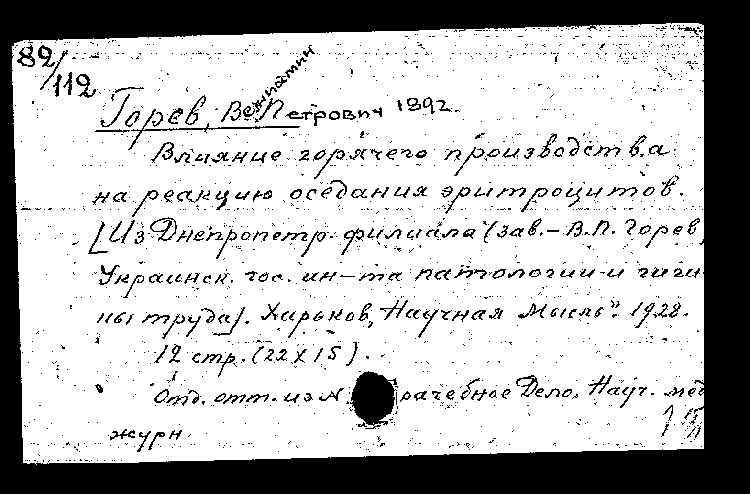 82/112
Горев, Вениамин Петрович 1892.
Влияние горячего производства
на реакцию оседания эритроцитов.
[Из Днепропетр. филиала (зав. - В.П. Горев,
Украинск. гос. ин-та патологии и гиги
ны труда]. Харьков, "Научная Мысль". 1928.
12 стр. (22 x 15).
Отд. отт. из рачебное Дело, Науч. мед
журн.